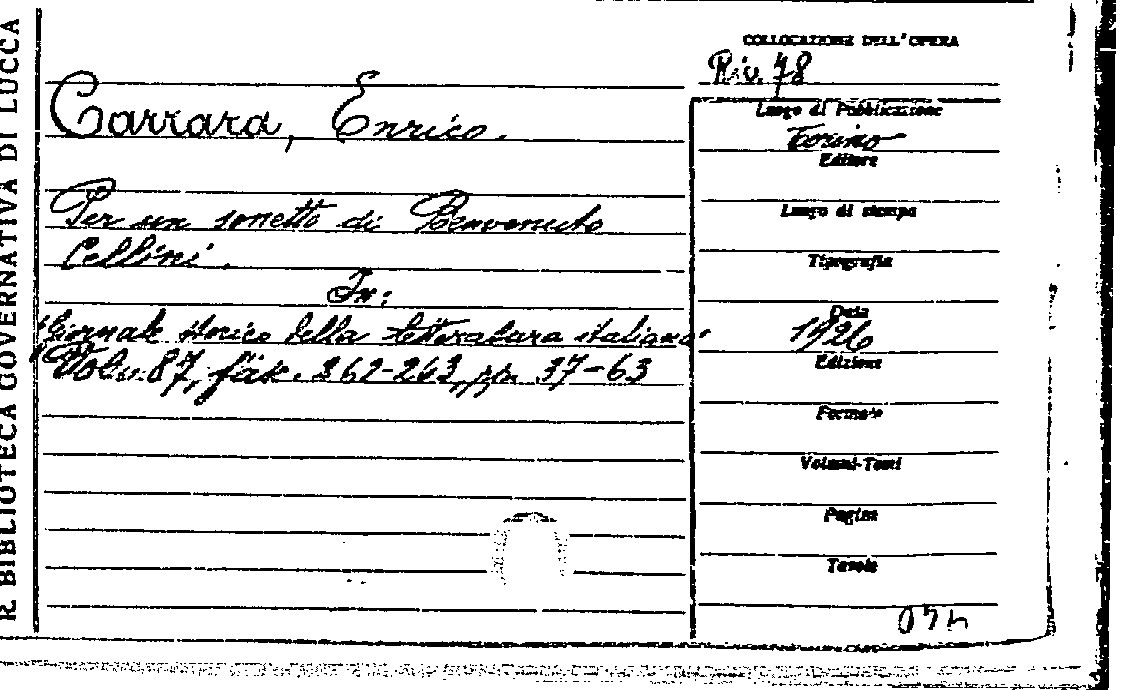 R. BIBLIOTECA GOVERNATIVA DI LUCCA
COLLOCAZIONE DELL'OPERA
Riv. 78
Carrara, Enrico.
Per un sonetto di Benvenuto
Cellini.
In:
"Giornale storico della letteratura italiana"
Vol. 87, fasc. 262-263, pp. 37-63
Luogo di Pubblicazione
Torino
Editore
Luogo di stampa
Tipografia
Data
1926
Edizione
Formato
Volumi-Tomi
Pagine
Tavole